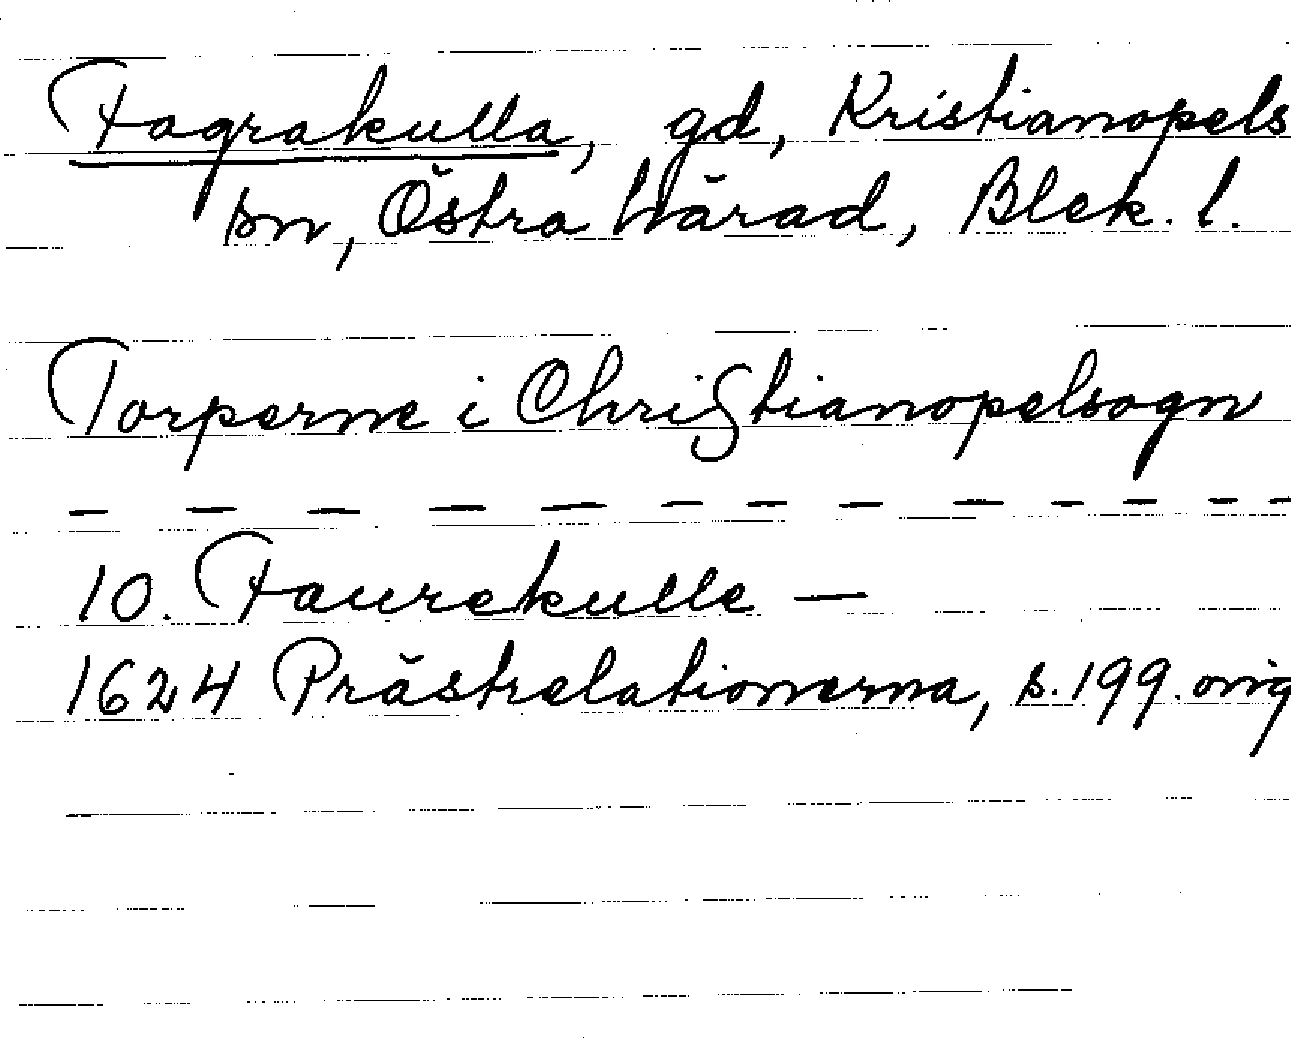 Fagrakulla, gd, Kristianopels
sn, Östra härad, Blek. l.
Torperne i Christianopelsogn
— — — — — — — — — — — — —
10. Faurekulle —
1624 Prästrelationerna, s. 199. orig